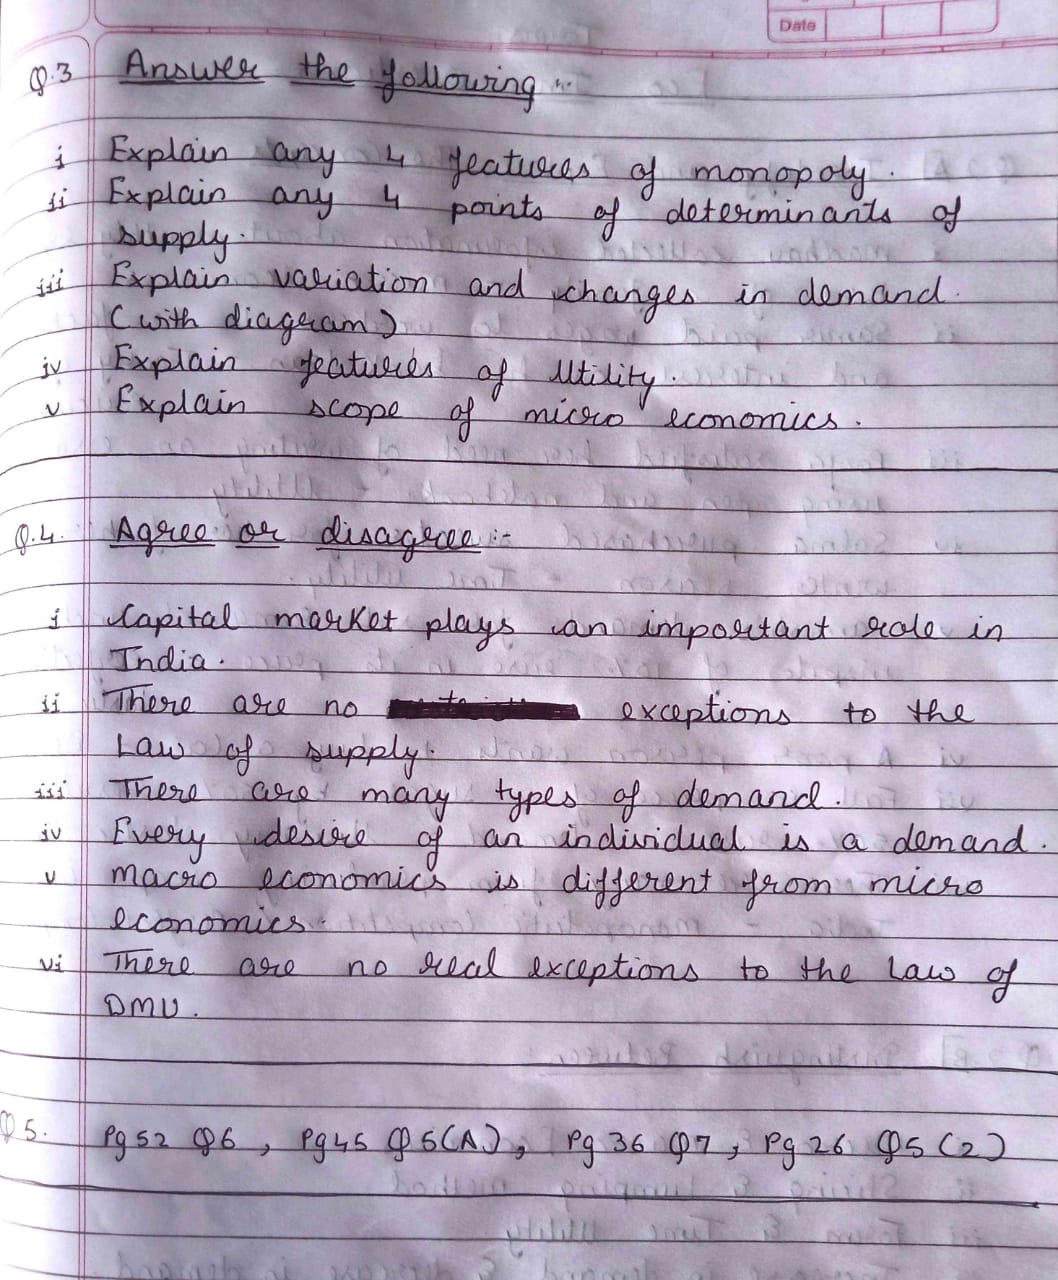 Date
Q.3 Answer the following :-
i Explain any 4 features of monopoly.
ii Explain any 4 points of determinants of
supply.
iii Explain variation and changes in demand.
(with diagram)
iv Explain features of Utility.
v Explain scope of micro economics.
Q.4. Agree or disagree :-
i Capital market plays an important role in
India.
ii There are no exceptions to the
Law of supply.
iii There are many types of demand.
iv Every desire of an individual is a demand.
v Macro economics is different from micro
economics.
vi There are no real exceptions to the Law of
DMU.
Q5. Pg 52 Q6, Pg 45 Q5(A), Pg 36 Q7, Pg 26 Q5 (2)